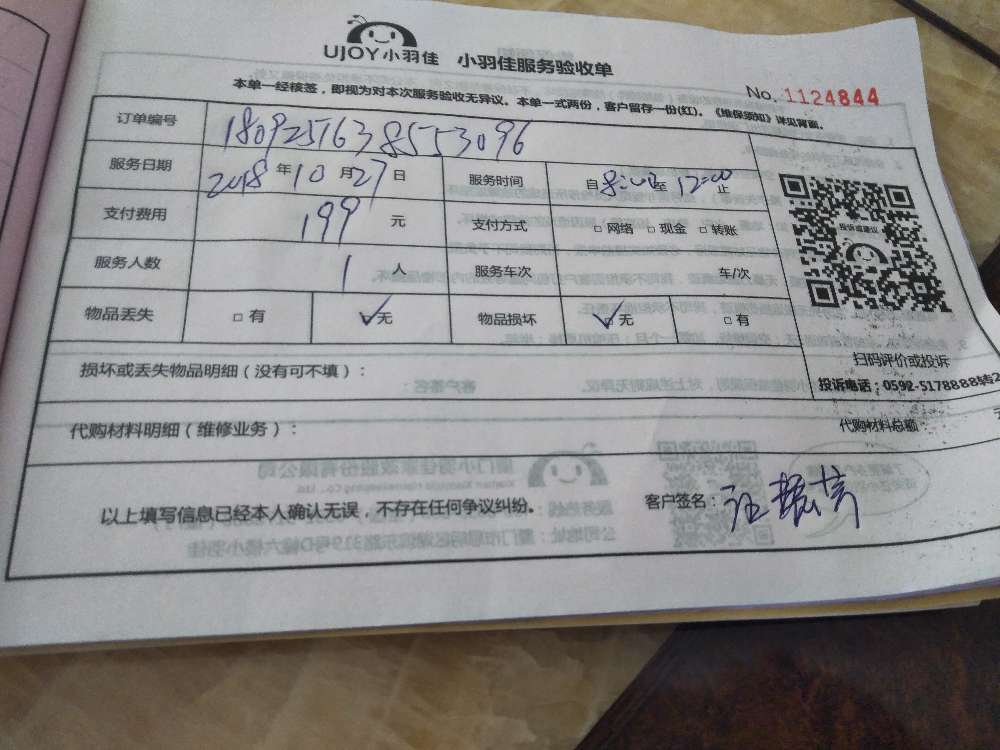 UJOY小羽佳 小羽佳服务验收单
No. 1124844
本单一经核签，即视为对本次服务验收无异议。本单一式两份，客户留存一份(红)。《维保须知》详见背面。
订单编号 1809251638553096
服务日期 2018年10月27日 服务时间 自8:00至12:00止
支付费用 199 元 支付方式 □网络 □现金 □转账
服务人数 1 人 服务车次 车/次
物品丢失 □有 ☑无 物品损坏 ☑无 □有
投诉或建议
扫码评价或投诉
损坏或丢失物品明细（没有可不填）：
投诉电话：0592-5178888转2
代购材料明细（维修业务）： 代购材料总额
以上填写信息已经本人确认无误，不存在任何争议纠纷。 客户签名：